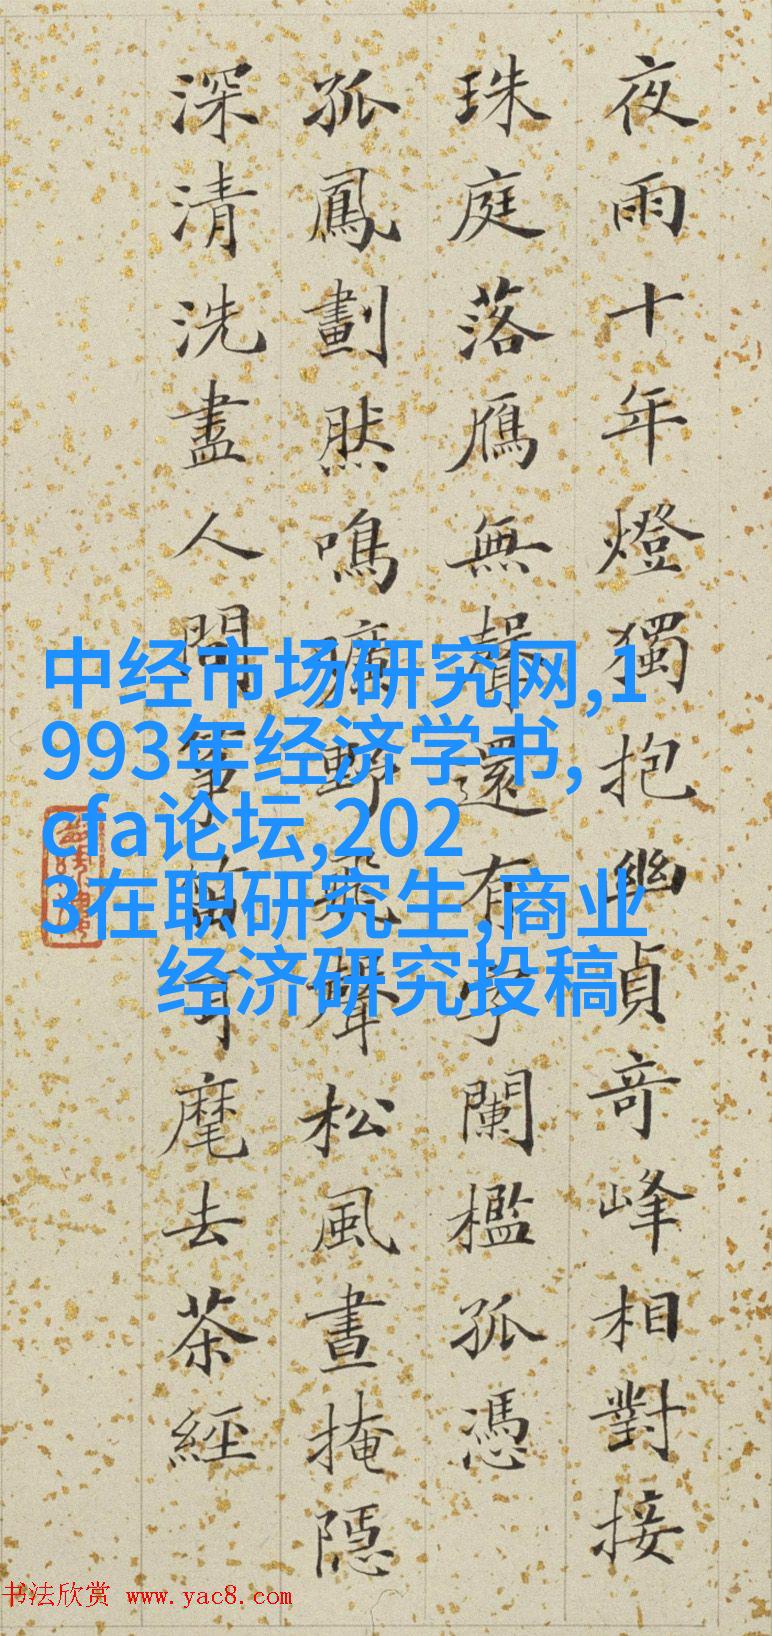 夜雨十年燈獨抱幽貞奇峰相對接
珠庭落鴈無聲還有字闌檻孤憑
孤鳳劃然鳴野飛聲松風晝掩隠
深清洗盡人間箏笛耳麾去茶經
中经市场研究网,1
993年经济学书,
cfa论坛,202
3在职研究生,商业
经济研究投稿
书法欣赏 www.yac8.com